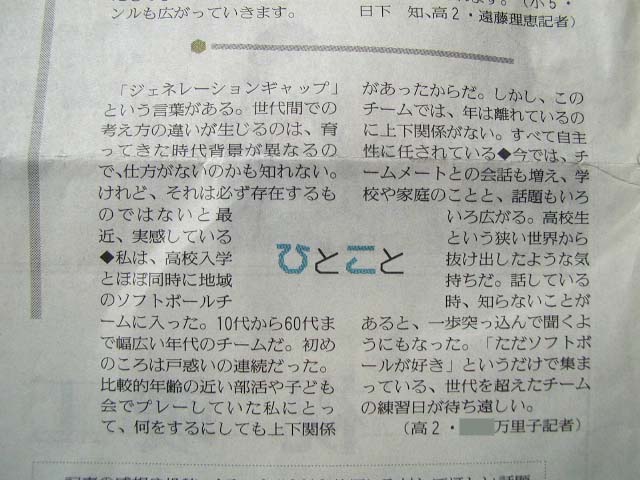 ンルも広がっていきます。
日下　知、高2・遠藤理恵記者）
「ジェネレーションギャップ」
という言葉がある。世代間での
考え方の違いが生じるのは、育
ってきた時代背景が異なるの
で、仕方がないのかも知れない。
けれど、それは必ず存在するも
のではないと最
近、実感している
◆私は、高校入学
とほぼ同時に地域
のソフトボールチ
ームに入った。10代から60代ま
で幅広い年代のチームだ。初め
のころは戸惑いの連続だった。
比較的年齢の近い部活や子ども
会でプレーしていた私にとっ
て、何をするにしても上下関係
ひとこと
があったからだ。しかし、この
チームでは、年は離れているの
に上下関係がない。すべて自主
性に任されている◆今では、チ
ームメートとの会話も増え、学
校や家庭のことと、話題もいろ
いろ広がる。高校生
という狭い世界から
抜け出したような気
持ちだ。話している
時、知らないことが
あると、一歩突っ込んで聞くよ
うにもなった。「ただソフトボ
ールが好き」というだけで集ま
っている、世代を超えたチーム
の練習日が待ち遠しい。
（高2・万里子記者）